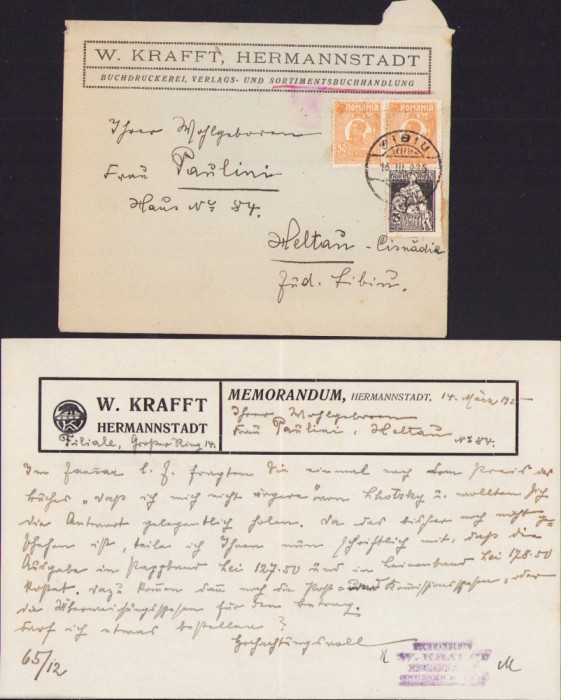 W. KRAFFT, HERMANNSTADT
BUCHDRUCKEREI, VERLAGS- UND SORTIMENTSBUCHHANDLUNG
ROMANIA ROMANIA
50
SIBIU
Ihrer Wohlgeboren
Frau Paulini
Haus No 84.
Heltau - Cisnădie
Jud. Sibiu.
W. KRAFFT
HERMANNSTADT
Filiale, Großer Ring 14.
MEMORANDUM, HERMANNSTADT, 14. März 1925
Ihrer Wohlgeboren
Frau Paulini, Heltau
No 84.
Im Jänner l. J. fragten Sie einmal nach dem Preis des
Buches „Daß ich mich nicht ärgere" von Lhotzky u. wollten sich
die Antwort gelegentlich holen. Da das bisher noch nicht ge-
schehen ist, teile ich Ihnen nun schriftlich mit, daß die
Ausgabe in Pappband Lei 127.50 und in Leinenband Lei 178.50
kostet. Dazu kommen dann noch die Post- und Kommissionsspesen, oder
die Überweisungsspesen für den Betrag.
Darf ich etwas bestellen?
Hochachtungsvoll
65/12
BUCHHANDLUNG
W. KRAFFT
M